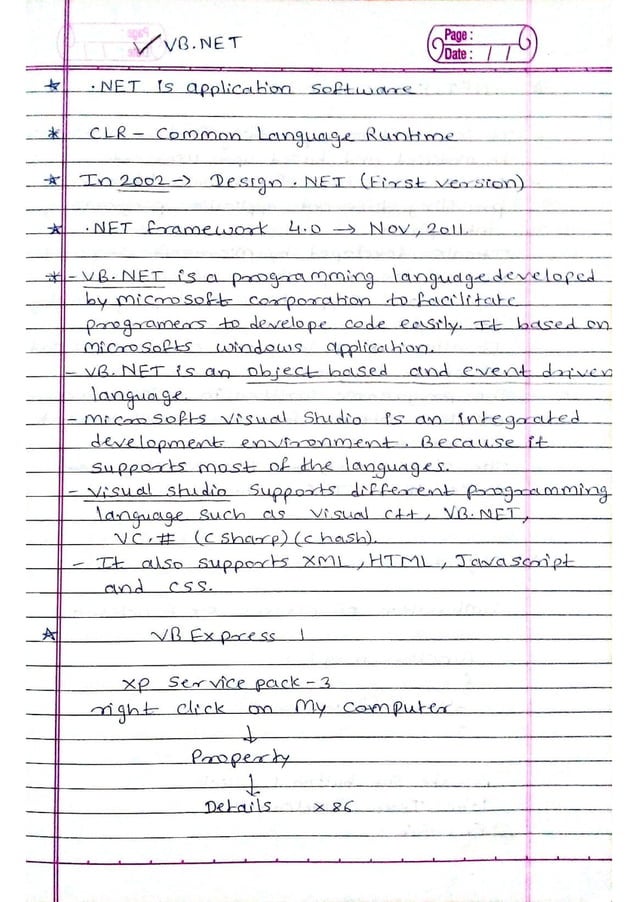 ✓ VB.NET
Page :
Date : / /
★ .NET is application software
★ CLR - Common Language Runtime
★ In 2002 → Design .NET (First version)
★ .NET framework 4.0 → Nov, 2011.
★ - VB.NET is a programming language developed
by microsoft corporation to facilitate
programers to develope code easily. It based on
microsofts windows application.
- VB.NET is an object based and event driven
language.
- microsofts visual studio is an integrated
development environment. Because it
supports most of the languages.
- visual studio supports different programming
language such as visual c++, VB.NET,
VC.# (c sharp) (c hash).
- It also supports XML, HTML, Javascript
and css.
★ VB Express 1
xp service pack - 3
right click on My computer
↓
Property
↓
Details x 86